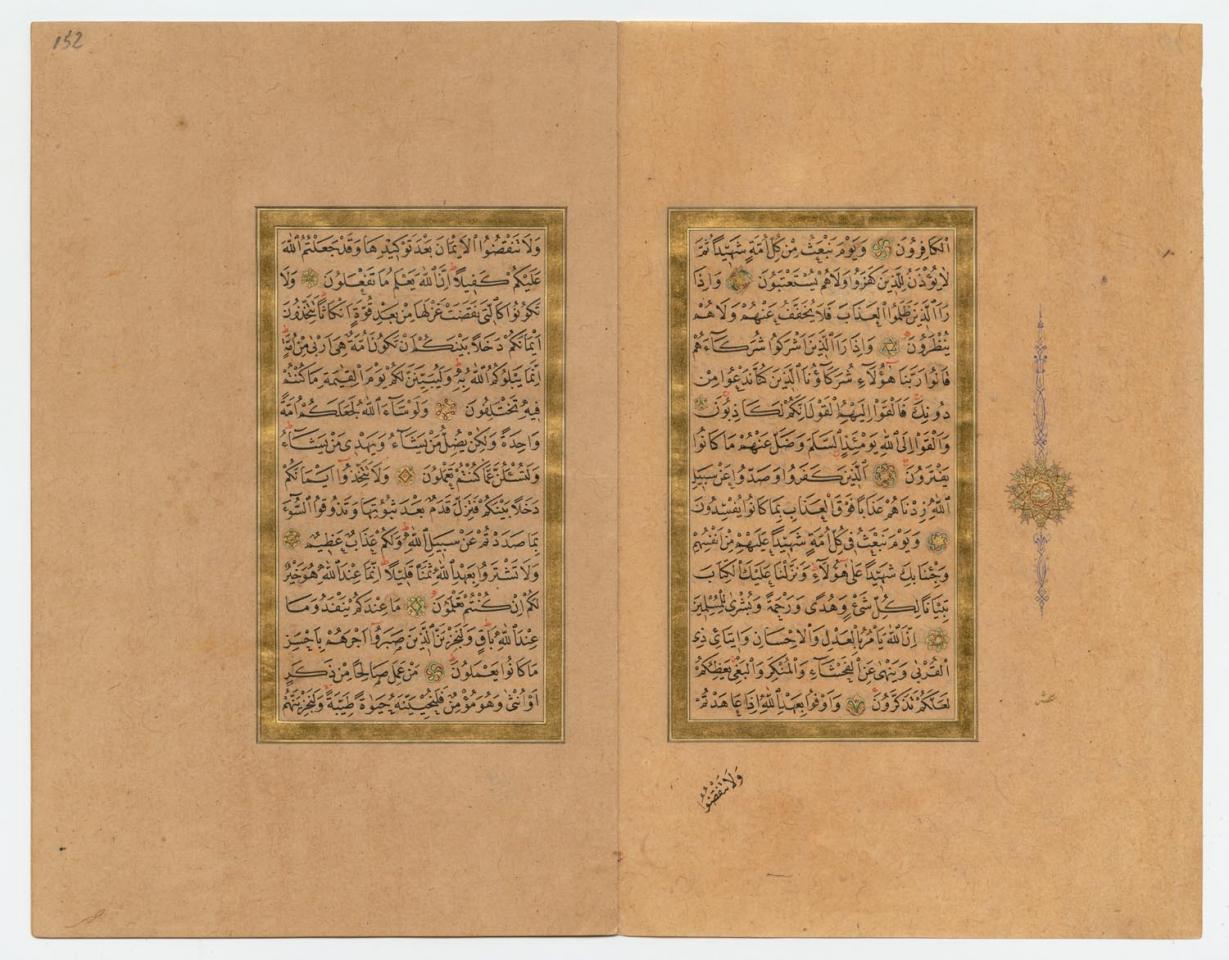 الْكَافِرُونَ وَيَوْمَ نَبْعَثُ مِنْ كُلِّ اُمَّةٍ شَهِيدًا ثُمَّ
لَا يُؤْذَنُ لِلَّذِينَ كَفَرُوا وَلَا هُمْ يُسْتَعْتَبُونَ وَاِذَا
رَاَ الَّذِينَ ظَلَمُوا الْعَذَابَ فَلَا يُخَفَّفُ عَنْهُمْ وَلَا هُمْ
يُنْظَرُونَ وَاِذَا رَاَ الَّذِينَ اَشْرَكُوا شُرَكَاءَهُمْ
قَالُوا رَبَّنَا هٰؤُلَاءِ شُرَكَاؤُنَا الَّذِينَ كُنَّا نَدْعُوا مِنْ
دُونِكَ فَاَلْقَوْا اِلَيْهِمُ الْقَوْلَ اِنَّكُمْ لَكَاذِبُونَ
وَاَلْقَوْا اِلَى اللّٰهِ يَوْمَئِذٍ السَّلَمَ وَضَلَّ عَنْهُمْ مَا كَانُوا
يَفْتَرُونَ اَلَّذِينَ كَفَرُوا وَصَدُّوا عَنْ سَبِيلِ
اللّٰهِ زِدْنَاهُمْ عَذَابًا فَوْقَ الْعَذَابِ بِمَا كَانُوا يُفْسِدُونَ
وَيَوْمَ نَبْعَثُ فِى كُلِّ اُمَّةٍ شَهِيدًا عَلَيْهِمْ مِنْ اَنْفُسِهِمْ
وَجِئْنَا بِكَ شَهِيدًا عَلٰى هٰؤُلَاءِ وَنَزَّلْنَا عَلَيْكَ الْكِتَابَ
تِبْيَانًا لِكُلِّ شَىْءٍ وَهُدًى وَرَحْمَةً وَبُشْرٰى لِلْمُسْلِمِينَ
اِنَّ اللّٰهَ يَاْمُرُ بِالْعَدْلِ وَالْاِحْسَانِ وَاِيتَائِ ذِى
الْقُرْبٰى وَيَنْهٰى عَنِ الْفَحْشَاءِ وَالْمُنْكَرِ وَالْبَغْىِ يَعِظُكُمْ
لَعَلَّكُمْ تَذَكَّرُونَ وَاَوْفُوا بِعَهْدِ اللّٰهِ اِذَا عَاهَدْتُمْ
عشر
وَلَا تَنْقُضُوا
152
وَلَا تَنْقُضُوا الْاَيْمَانَ بَعْدَ تَوْكِيدِهَا وَقَدْ جَعَلْتُمُ اللّٰهَ
عَلَيْكُمْ كَفِيلًا اِنَّ اللّٰهَ يَعْلَمُ مَا تَفْعَلُونَ وَلَا
تَكُونُوا كَالَّتِى نَقَضَتْ غَزْلَهَا مِنْ بَعْدِ قُوَّةٍ اَنْكَاثًا تَتَّخِذُونَ
اَيْمَانَكُمْ دَخَلًا بَيْنَكُمْ اَنْ تَكُونَ اُمَّةٌ هِىَ اَرْبٰى مِنْ اُمَّةٍ
اِنَّمَا يَبْلُوكُمُ اللّٰهُ بِهِ وَلَيُبَيِّنَنَّ لَكُمْ يَوْمَ الْقِيٰمَةِ مَا كُنْتُمْ
فِيهِ تَخْتَلِفُونَ وَلَوْ شَاءَ اللّٰهُ لَجَعَلَكُمْ اُمَّةً
وَاحِدَةً وَلٰكِنْ يُضِلُّ مَنْ يَشَاءُ وَيَهْدِى مَنْ يَشَاءُ
وَلَتُسْئَلُنَّ عَمَّا كُنْتُمْ تَعْمَلُونَ وَلَا تَتَّخِذُوا اَيْمَانَكُمْ
دَخَلًا بَيْنَكُمْ فَتَزِلَّ قَدَمٌ بَعْدَ ثُبُوتِهَا وَتَذُوقُوا السُّوءَ
بِمَا صَدَدْتُمْ عَنْ سَبِيلِ اللّٰهِ وَلَكُمْ عَذَابٌ عَظِيمٌ
وَلَا تَشْتَرُوا بِعَهْدِ اللّٰهِ ثَمَنًا قَلِيلًا اِنَّمَا عِنْدَ اللّٰهِ هُوَ خَيْرٌ
لَكُمْ اِنْ كُنْتُمْ تَعْلَمُونَ مَا عِنْدَكُمْ يَنْفَدُ وَمَا
عِنْدَ اللّٰهِ بَاقٍ وَلَنَجْزِيَنَّ الَّذِينَ صَبَرُوا اَجْرَهُمْ بِاَحْسَنِ
مَا كَانُوا يَعْمَلُونَ مَنْ عَمِلَ صَالِحًا مِنْ ذَكَرٍ
اَوْ اُنْثٰى وَهُوَ مُؤْمِنٌ فَلَنُحْيِيَنَّهُ حَيٰوةً طَيِّبَةً وَلَنَجْزِيَنَّهُمْ